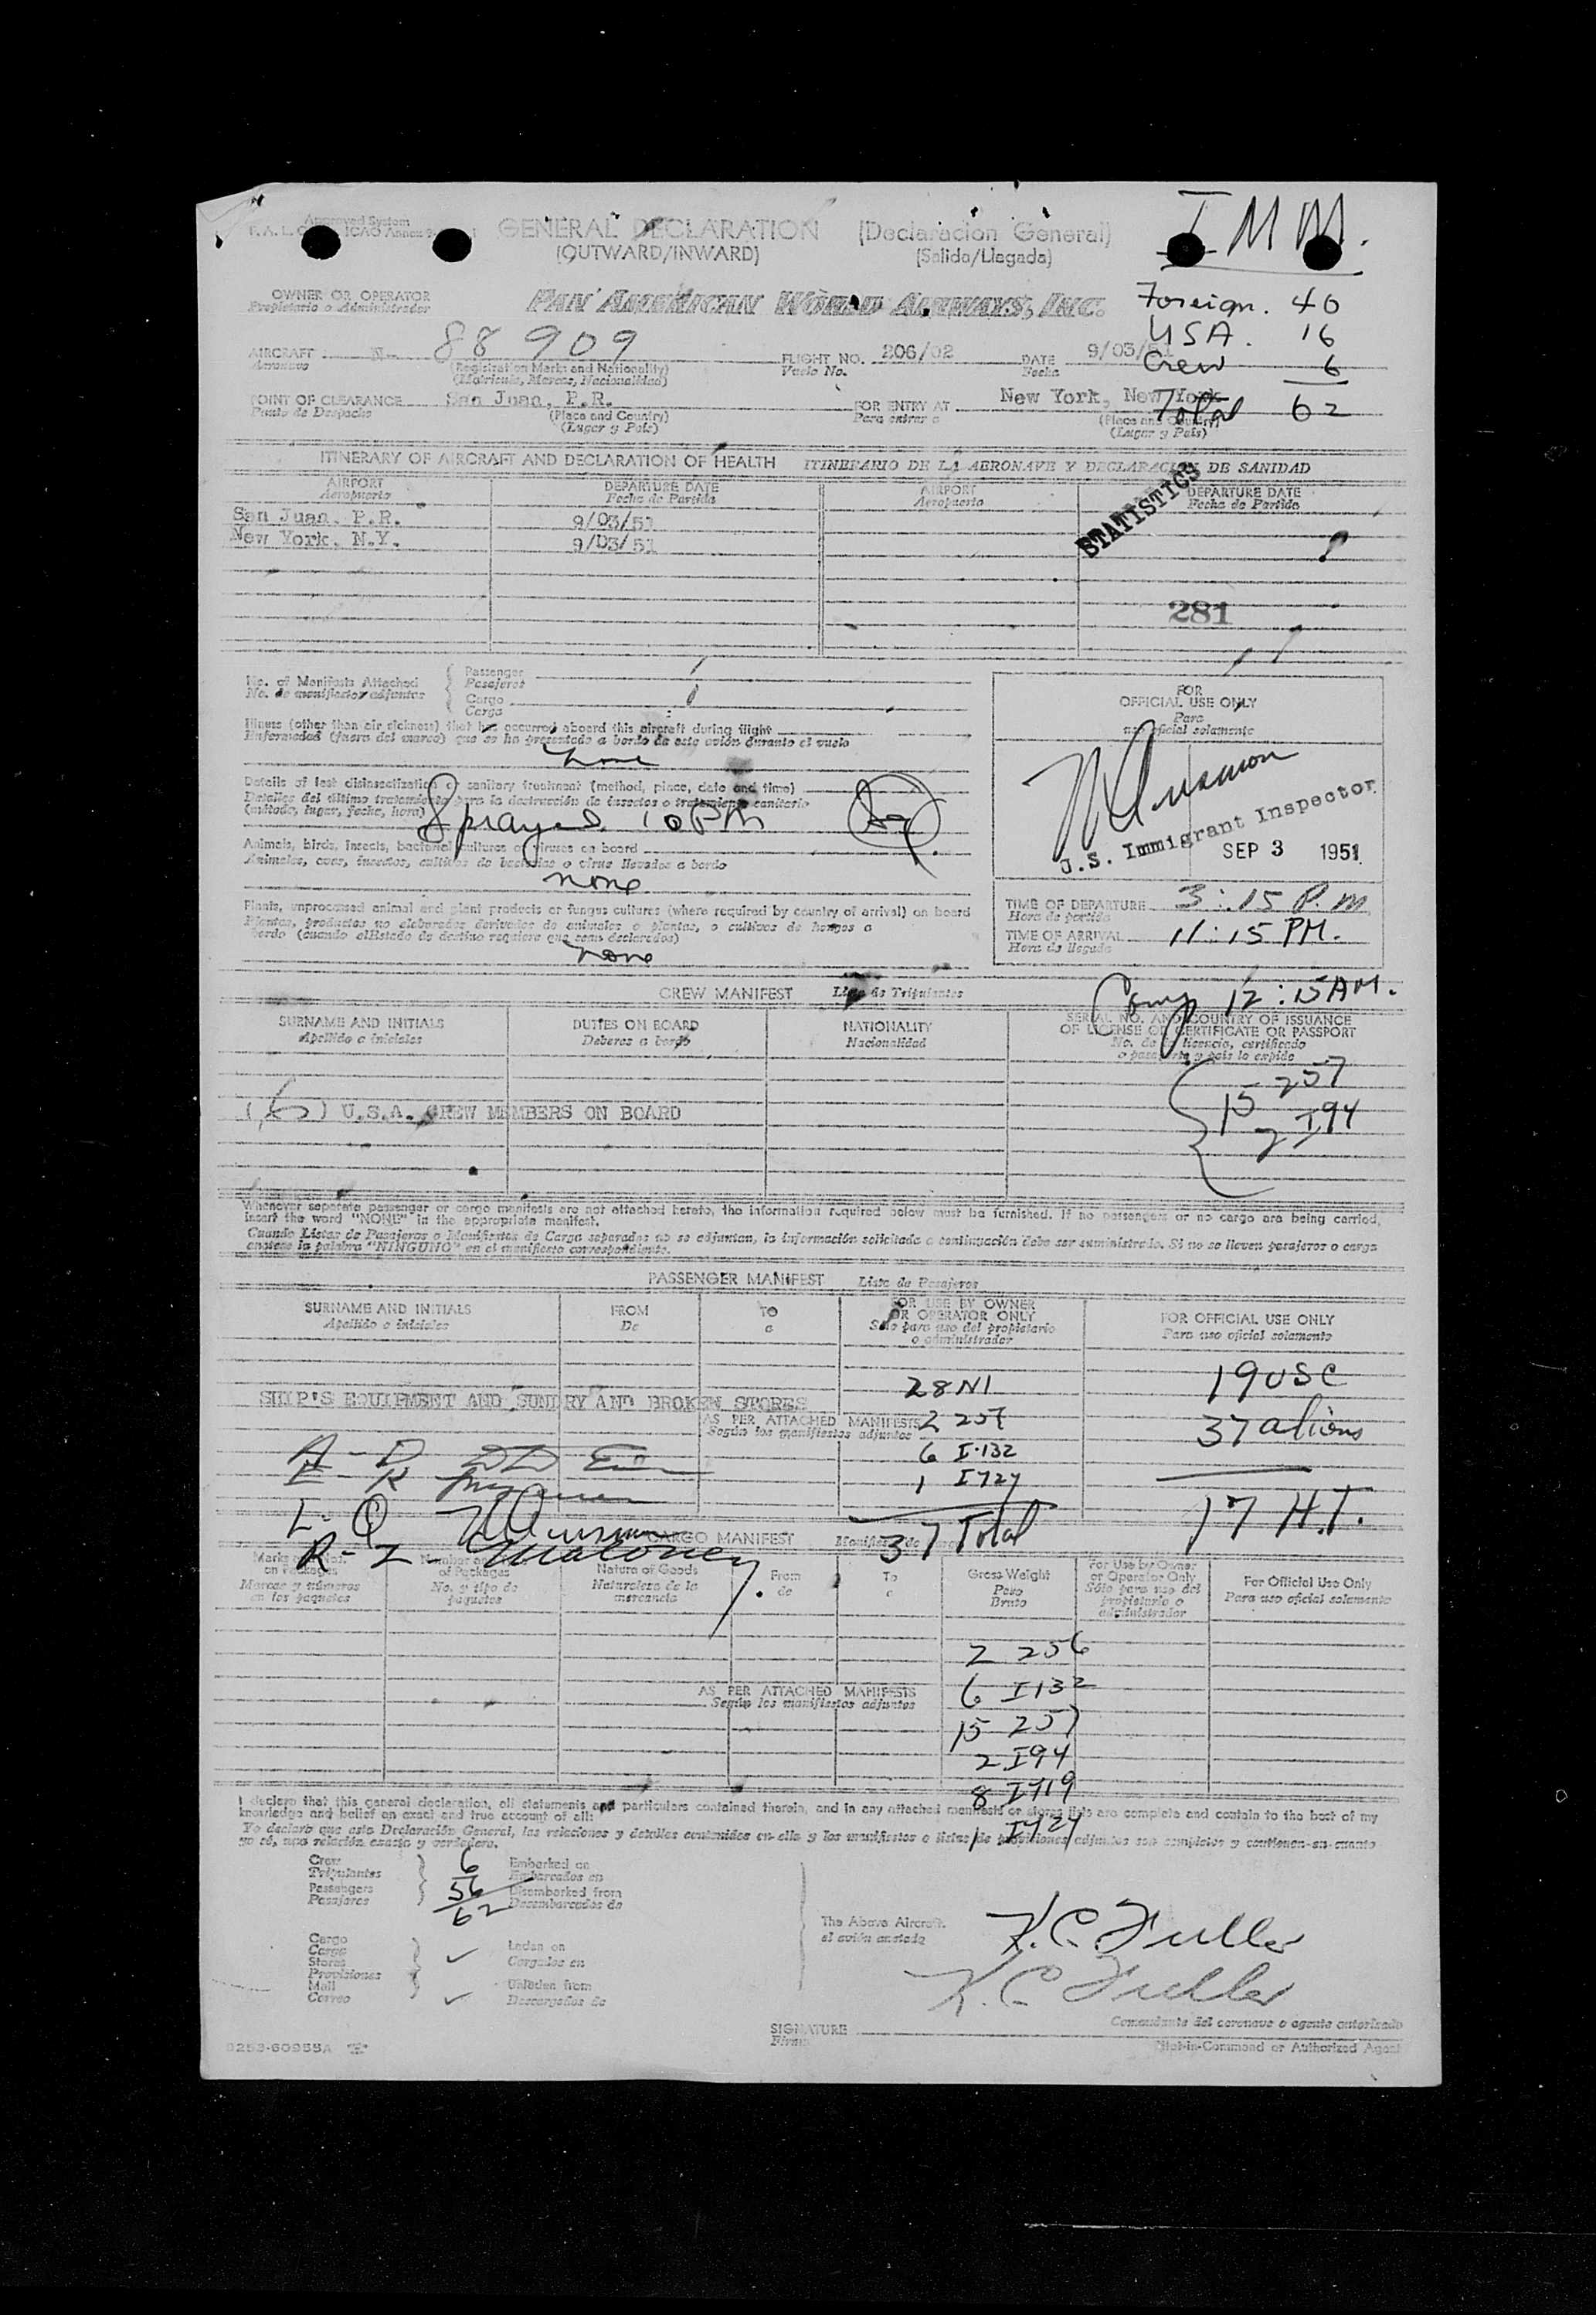 Approved System
GENERAL DECLARATION (Declaración General)
(OUTWARD/INWARD) (Salida/Llegada)
IMM.
OWNER OR OPERATOR
Propietario o Administrador
PAN AMERICAN WORLD AIRWAYS, INC.
Foreign. 40
USA. 16
Crew 6
Total 62
AIRCRAFT N- 88909
Aeronave
(Registration Marks and Nationality)
(Matricula, Marcas, Nacionalidad)
FLIGHT NO. 206/02
Vuelo No.
DATE 9/03/51
Fecha
POINT OF CLEARANCE San Juan, P.R.
Punto de Despacho
(Place and Country)
(Lugar y Pais)
FOR ENTRY AT New York, New York
Para entrar a
(Place and Country)
(Lugar y Pais)
ITINERARY OF AIRCRAFT AND DECLARATION OF HEALTH ITINERARIO DE LA AERONAVE Y DECLARACION DE SANIDAD
AIRPORT DEPARTURE DATE AIRPORT DEPARTURE DATE
Aeropuerto Fecha de Partida Aeropuerto Fecha de Partida
STATISTICS
San Juan, P.R. 9/03/51
New York, N.Y. 9/03/51
281
No. of Manifests Attached
No. de manifiestos adjuntos
Passenger
Pasajeros
Cargo
Carga
Illness (other than air sickness) that has occurred aboard this aircraft during flight
Enfermedad (fuera del mareo) que se ha presentado a bordo de este avión durante el vuelo
none
Details of last disinsectization or sanitary treatment (method, place, date and time)
Detalles del último tratamiento para la destrucción de insectos o tratamiento sanitario
(método, lugar, fecha, hora)
Sprayed 10 PM
Animals, birds, insects, bacterial cultures or viruses on board
Animales, aves, insectos, cultivos de bacterias o virus llevados a bordo
none
Plants, unprocessed animal and plant products or fungus cultures (where required by country of arrival) on board
Plantas, productos no elaborados derivados de animales o plantas, o cultivos de hongos a
bordo (cuando el Estado de destino requiere que sean declarados)
none
FOR
OFFICIAL USE ONLY
Para
uso oficial solamente
U.S. Immigrant Inspector
SEP 3 1951
TIME OF DEPARTURE 3:15 P.M
Hora de partida
TIME OF ARRIVAL 11:15 PM.
Hora de llegada
12:15 AM.
CREW MANIFEST Lista de Tripulantes
SURNAME AND INITIALS DUTIES ON BOARD NATIONALITY
Apellido e iniciales Deberes a bordo Nacionalidad
SERIAL NO. AND COUNTRY OF ISSUANCE
OF LICENSE OR CERTIFICATE OR PASSPORT
No. de la licencia, certificado
o pasaporte y pais lo expide
15 257
2 I94
(6) U.S.A. CREW MEMBERS ON BOARD
Whenever separate passenger or cargo manifests are not attached hereto, the information required below must be furnished. If no passengers or no cargo are being carried,
insert the word "NONE" in the appropriate manifest.
Cuando Listas de Pasajeros o Manifiestos de Carga separados no se adjuntan, la información solicitada a continuación debe ser suministrada. Si no se lleven pasajeros o carga
anótese la palabra "NINGUNO" en el manifiesto correspondiente.
PASSENGER MANIFEST Lista de Pasajeros
SURNAME AND INITIALS FROM TO
Apellido e iniciales De a
FOR USE BY OWNER
OR OPERATOR ONLY
Sólo para uso del propietario
o administrador
FOR OFFICIAL USE ONLY
Para uso oficial solamente
28 NI 19 USC
SHIP'S EQUIPMENT AND SUNDRY AND BROKEN STORES
AS PER ATTACHED MANIFESTS 2 257
Según los manifiestos adjuntos
37 aliens
6 I-132
A - D
1 I424
E - K
L - Q
37 Total 17 H.T.
R - Z Maloney
CARGO MANIFEST
on Packages of Packages Nature of Goods From To Gross Weight
Marcas y números No. y tipo de Naturaleza de la de a Peso
en los paquetes paquetes mercancía Bruto
For Use by Owner
or Operator Only
Sólo para uso del
propietario o
administrador
For Official Use Only
Para uso oficial solamente
2 256
6 I132
AS PER ATTACHED MANIFESTS
Según los manifiestos adjuntos
15 257
2 I94
8 I419
1 I424
I declare that this general declaration, all statements and particulars contained therein, and in any attached manifests or stores lists are complete and contain to the best of my
knowledge and belief an exact and true account of all:
Yo declaro que esta Declaración General, las relaciones y detalles contenidos en ella y los manifiestos o listas de provisiones adjuntos son completos y contienen en cuanto
yo sé, una relación exacta y verdadera.
Crew 6 Embarked on
Tripulantes Embarcados en
Passengers 56 Disembarked from
Pasajeros 62 Desembarcados de
Cargo
Carga
Stores
Provisiones
Mail
Correo
Laden on
Cargados en
Unladen from
Descargados de
The Above Aircraft.
el avión anotado
K.C. Fuller
K.C. Fuller
SIGNATURE
Firma
Comandante del aeronave o agente autorizado
Pilot-in-Command or Authorized Agent